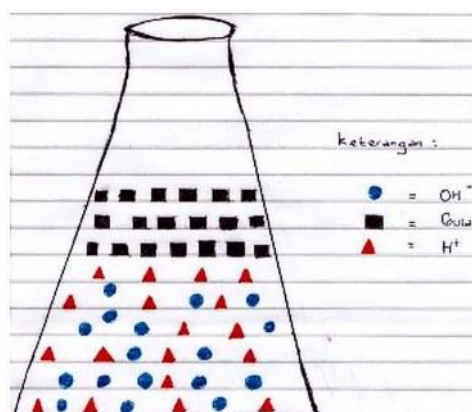 keterangan :
= OH⁻
= Gula
= H⁺